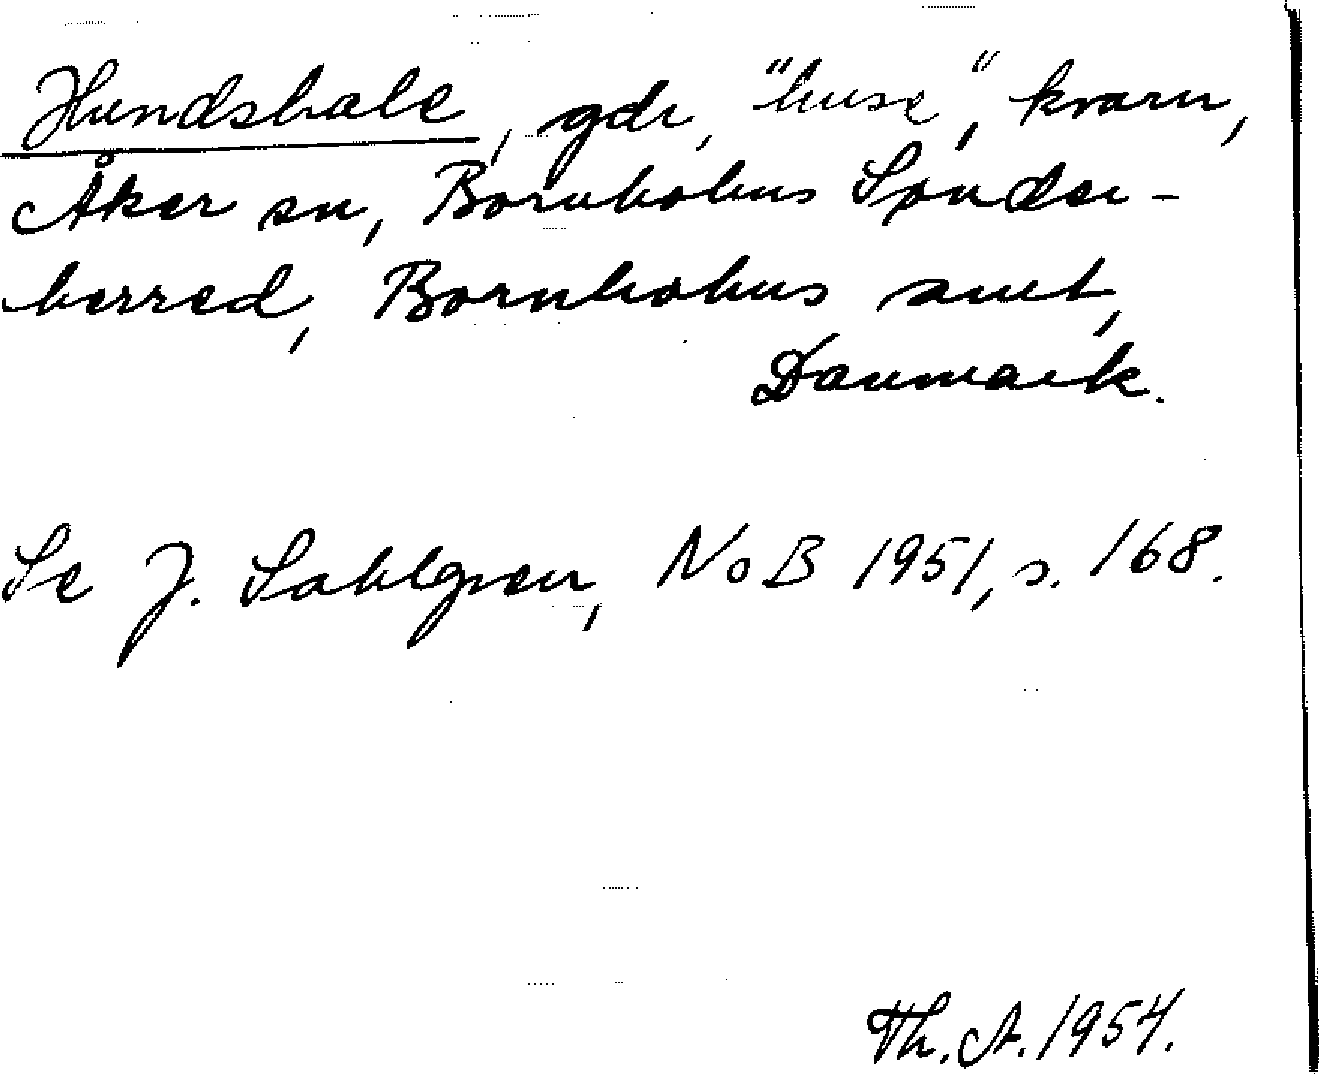 Hundshale, gdr, "huse", kvarn,
Åker sn, Bornholms Sønder-
herred, Bornholms amt,
Danmark.
Se J. Sahlgren, NoB 1951, s. 168.
Th. A. 1954.